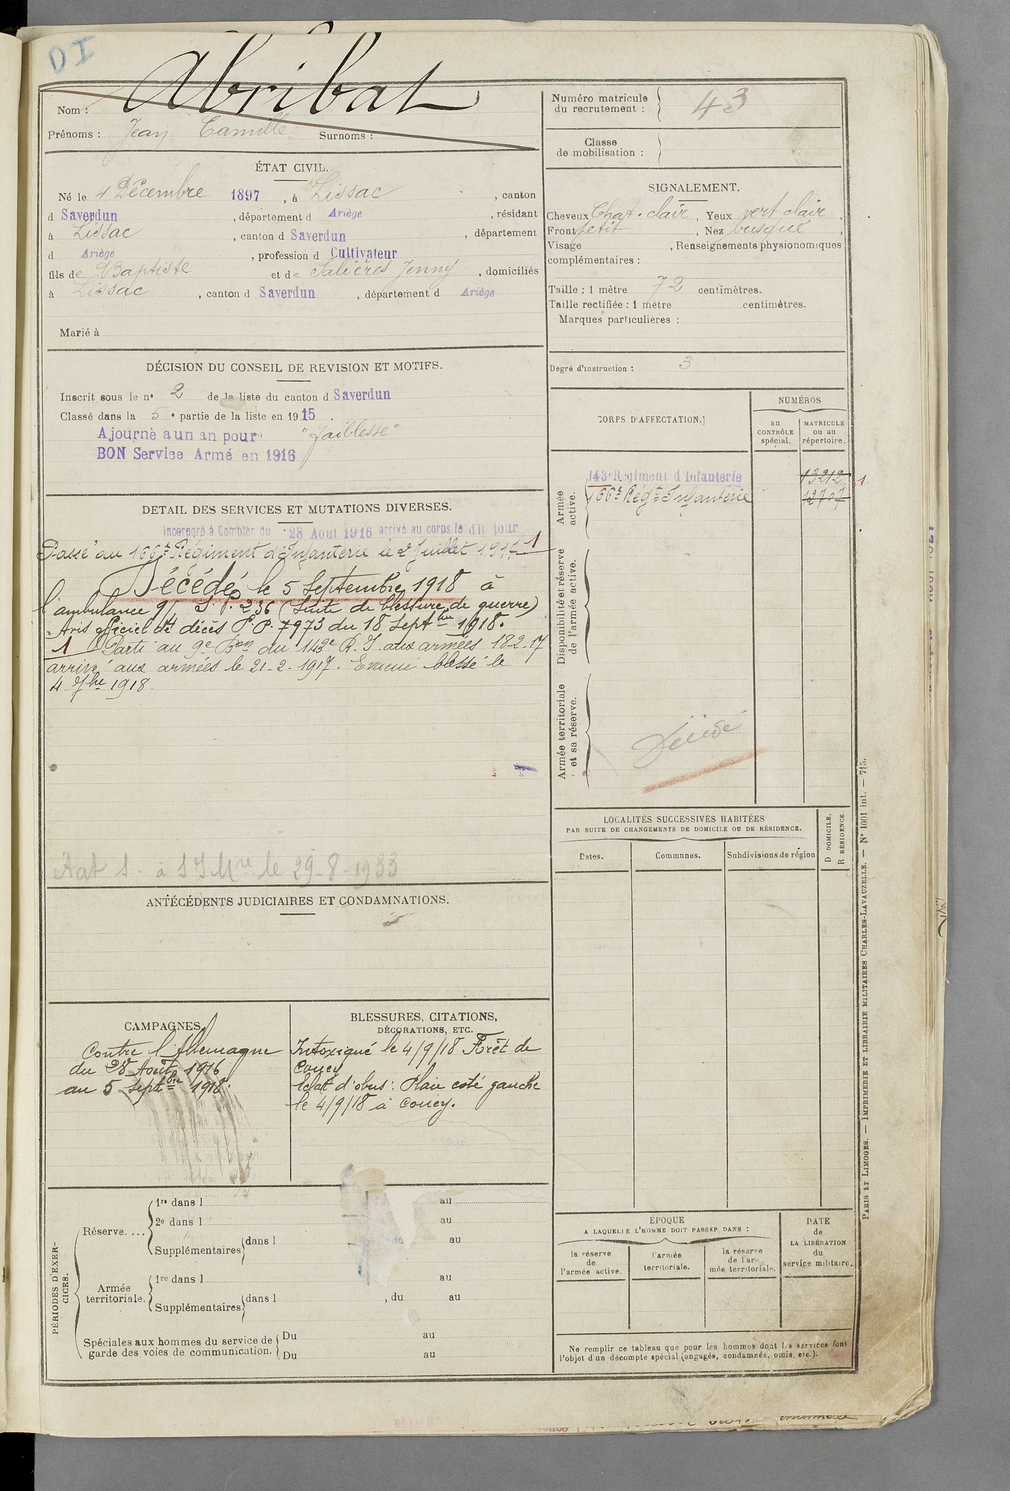 DI
Abribat
Nom :
Prénoms : Jean Camille Surnoms :
Numéro matricule
du recrutement : 43
Classe
de mobilisation :
ÉTAT CIVIL.
Né le 4 Décembre 1897, à Lissac, canton
d Saverdun, département d Ariège, résidant
à Lissac, canton d Saverdun, département
d Ariège, profession d Cultivateur
fils de Baptiste et de Salières Jenny, domiciliés
à Lissac, canton d Saverdun, département d Ariège
Marié à
SIGNALEMENT.
Cheveux Chat. clair, Yeux vert clair,
Front petit, Nez busqué,
Visage , Renseignements physionomiques
complémentaires :
Taille : 1 mètre 72 centimètres.
Taille rectifiée : 1 mètre centimètres.
Marques particulières :
Degré d'instruction : 3
DÉCISION DU CONSEIL DE REVISION ET MOTIFS.
Inscrit sous le n° 2 de la liste du canton d Saverdun
Classé dans la 5e partie de la liste en 1915.
Ajourné a un an pour "faiblesse"
BON Service Armé en 1916
CORPS D'AFFECTATION.
NUMÉROS
au
CONTRÔLE
spécial.
MATRICULE
ou au
répertoire.
Armée
active.
143e Régiment d'Infanterie 13212 1
166e Régt Infanterie 12707
Disponibilité et réserve
de l'armée active.
Armée territoriale
et sa réserve.
Décédé
DETAIL DES SERVICES ET MUTATIONS DIVERSES.
Incorporé à Compter du 28 Aout 1916 arrivé au corps le dit jour
Passé au 166e Régiment d'Infanterie le 2 Juillet 1917 1
Décédé le 5 Septembre 1918 à
l'ambulance 9/ S.P. 236 (Suite de blessure de guerre)
Avis officiel de décès P.P. 7973 du 18 Septbre 1918.
1 Parti au 9e Bon du 143e R.I. aux armées 18-2-17
arrivé aux armées le 21-2-1917. Evacué blessé le
4 7bre 1918.
le 29-8-1933
LOCALITÉS SUCCESSIVES HABITÉES
PAR SUITE DE CHANGEMENTS DE DOMICILE OU DE RÉSIDENCE.
Dates. Communes. Subdivisions de région
D DOMICILE.
R RÉSIDENCE.
ANTÉCÉDENTS JUDICIAIRES ET CONDAMNATIONS.
CAMPAGNES.
Contre l'Allemagne
du 28 Août 1916
au 5 Septbre 1918.
BLESSURES, CITATIONS,
DÉCORATIONS, ETC.
Intoxiqué le 4/9/18 Forêt de
Coucy
Eclat d'obus : Plaie coté gauche
le 4/9/18 à Coucy.
PÉRIODES D'EXER-
CICES.
Réserve. ...
1re dans l au
2e dans l au
Supplémentaires dans l au
Armée
territoriale.
1re dans l au
Supplémentaires dans l , du au
Spéciales aux hommes du service de
garde des voies de communication.
Du au
Du au
ÉPOQUE
A LAQUELLE L'HOMME DOIT PASSER DANS :
la réserve
de
l'armée active.
l'armée
territoriale.
la réserve
de l'ar-
mée territoriale.
DATE
de
LA LIBÉRATION
du
service militaire.
Ne remplir ce tableau que pour les hommes dont les services font
l'objet d'un décompte spécial (engagés, condamnés, omis, etc.).
PARIS ET LIMOGES. — IMPRIMERIE ET LIBRAIRIE MILITAIRES CHARLES-LAVAUZELLE. — N° 1001 int. — 715.